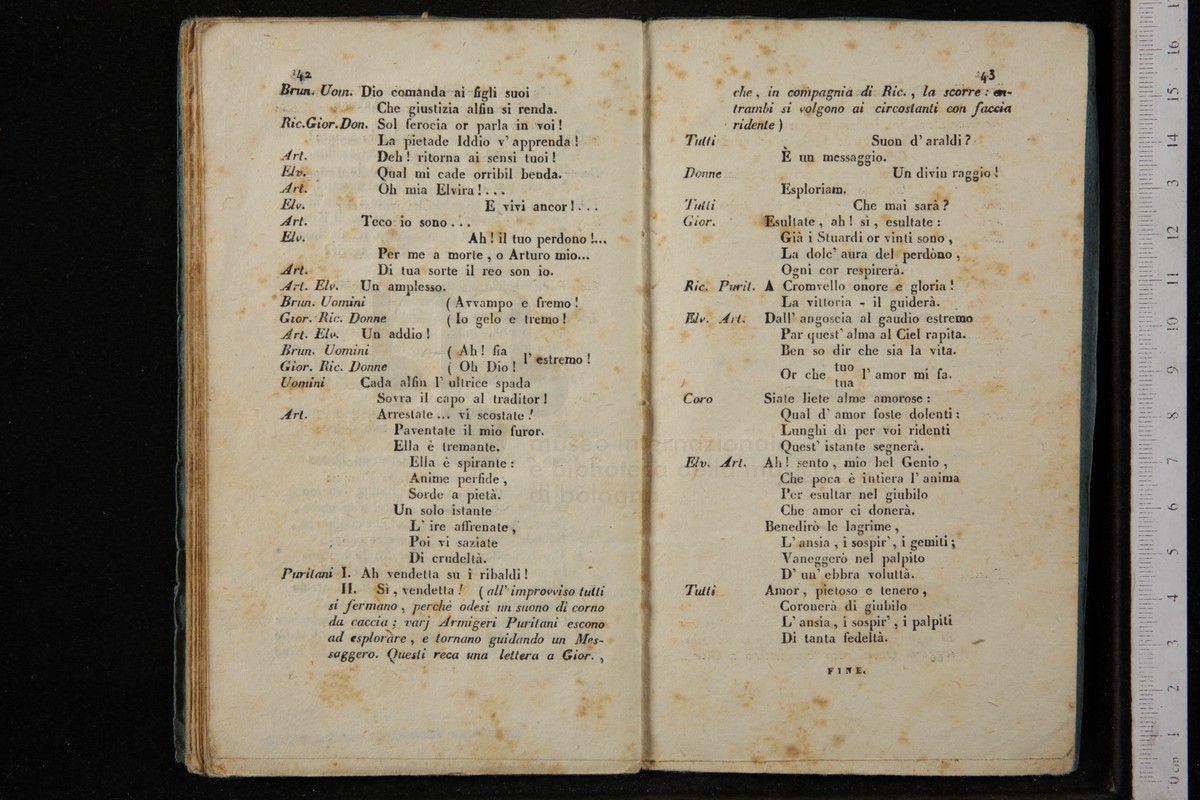 42
Brun. Uom. Dio comanda ai figli suoi
Che giustizia alfin si renda.
Ric.Gior.Don. Sol ferocia or parla in voi !
La pietade Iddio v' apprenda !
Art. Deh ! ritorna ai sensi tuoi !
Elv. Qual mi cade orribil benda.
Art. Oh mia Elvira ! . . .
Elv. E vivi ancor ! . . .
Art. Teco io sono . . .
Elv. Ah ! il tuo perdono !...
Per me a morte , o Arturo mio...
Art. Di tua sorte il reo son io.
Art. Elv. Un amplesso.
Brun. Uomini ( Avvampo e fremo !
Gior. Ric. Donne ( Io gelo e tremo !
Art. Elv. Un addio !
Brun. Uomini ( Ah ! sia
Gior. Ric. Donne ( Oh Dio ! l' estremo !
Uomini Cada alfin l' ultrice spada
Sovra il capo al traditor !
Art. Arrestate ... vi scostate !
Paventate il mio furor.
Ella è tremante.
Ella è spirante :
Anime perfide ,
Sorde a pietà.
Un solo istante
L' ire affrenate ,
Poi vi saziate
Di crudeltà.
Puritani I. Ah vendetta su i ribaldi !
II. Sì , vendetta ! ( all' improvviso tutti
si fermano , perchè odesi un suono di corno
da caccia ; varj Armigeri Puritani escono
ad esplorare , e tornano guidando un Mes-
saggero. Questi reca una lettera a Gior. ,
43
che , in compagnia di Ric. , la scorre : en-
trambi si volgono ai circostanti con faccia
ridente )
Tutti Suon d' araldi ?
È un messaggio.
Donne Un divin raggio !
Esploriam.
Tutti Che mai sarà ?
Gior. Esultate , ah ! sì , esultate :
Già i Stuardi or vinti sono ,
La dolc' aura del perdòno ,
Ogni cor respirerà.
Ric. Purit. A Cromvello onore e gloria !
La vittoria - il guiderà.
Elv. Art. Dall' angoscia al gaudio estremo
Par quest' alma al Ciel rapita.
Ben so dir che sia la vita.
Or che tuo l' amor mi fa.
tua
Coro Siate liete alme amorose :
Qual d' amor foste dolenti :
Lunghi dì per voi ridenti
Quest' istante segnerà.
Elv. Art. Ah ! sento , mio bel Genio ,
Che poca è intiera l' anima
Per esultar nel giubilo
Che amor ci donerà.
Benedirò le lagrime ,
L' ansia , i sospir' , i gemiti ;
Vaneggerò nel palpito
D' un' ebbra voluttà.
Tutti Amor , pietoso e tenero ,
Coronerà di giubilo
L' ansia , i sospir' , i palpiti
Di tanta fedeltà.
FINE.
museo internazionale
e biblioteca della musica
di bologna